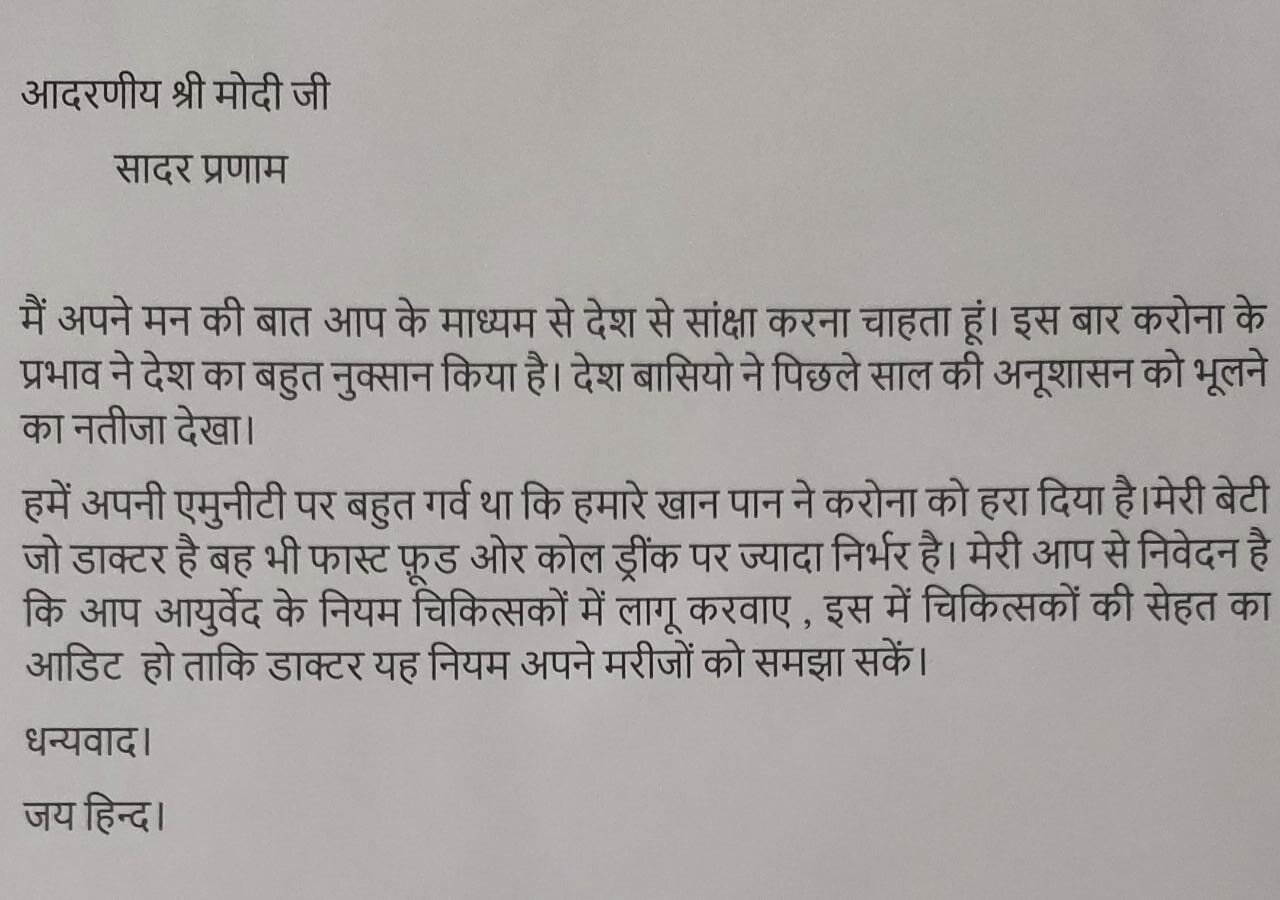 आदरणीय श्री मोदी जी
सादर प्रणाम
मैं अपने मन की बात आप के माध्यम से देश से सांक्षा करना चाहता हूं। इस बार करोना के
प्रभाव ने देश का बहुत नुक्सान किया है। देश बासियो ने पिछले साल की अनूशासन को भूलने
का नतीजा देखा।
हमें अपनी एमुनीटी पर बहुत गर्व था कि हमारे खान पान ने करोना को हरा दिया है।मेरी बेटी
जो डाक्टर है बह भी फास्ट फ़ूड ओर कोल ड्रींक पर ज्यादा निर्भर है। मेरी आप से निवेदन है
कि आप आयुर्वेद के नियम चिकित्सकों में लागू करवाए , इस में चिकित्सकों की सेहत का
आडिट हो ताकि डाक्टर यह नियम अपने मरीजों को समझा सकें।
धन्यवाद।
जय हिन्द।